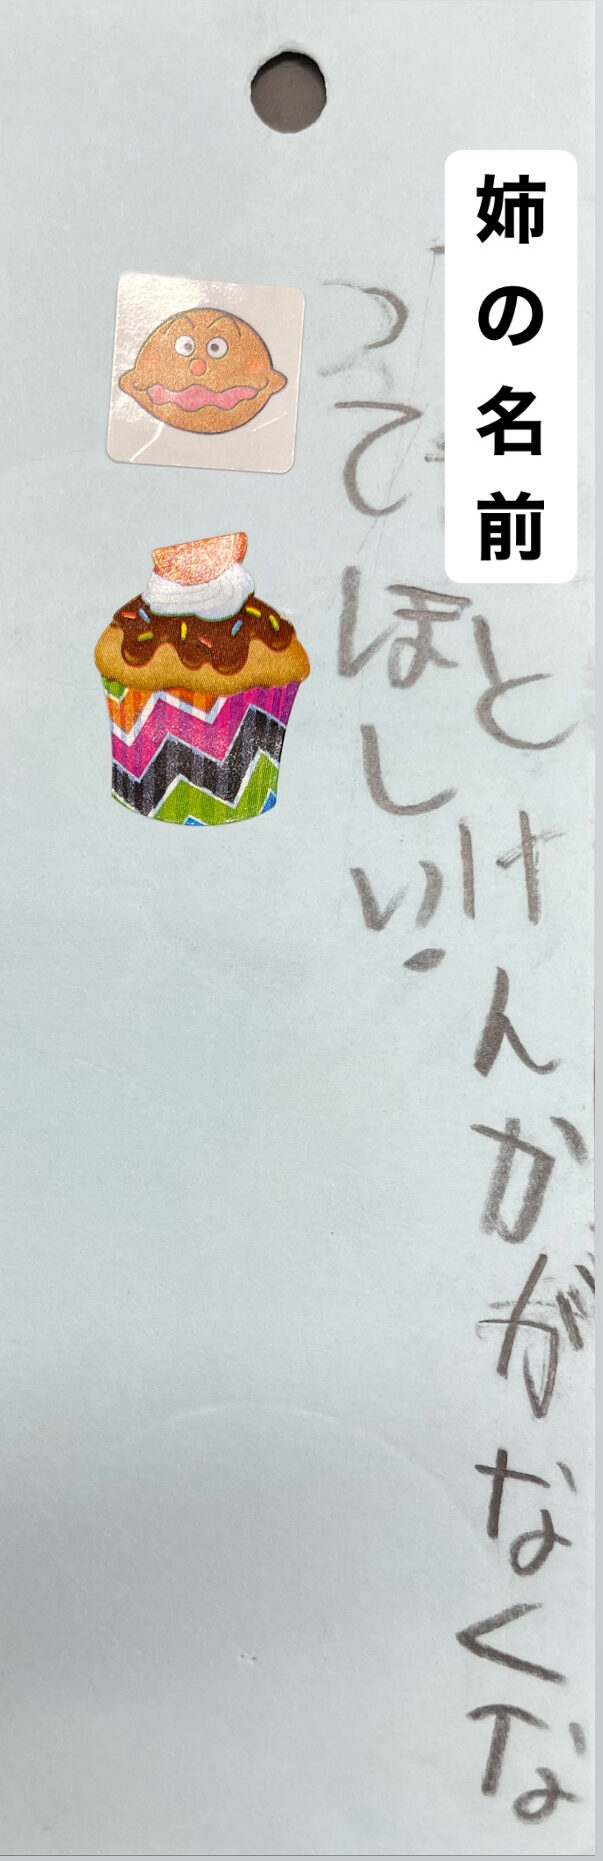 姉の名前とけんかがなくな
ってほしい。